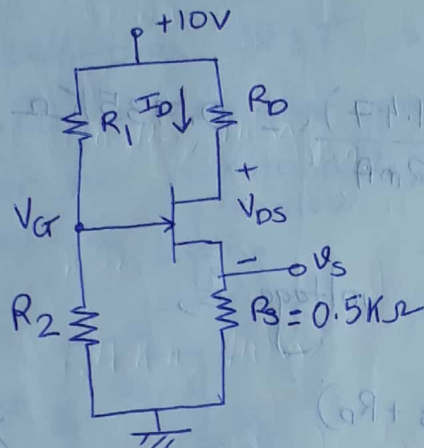 +10V
R1
ID ↓
RD
+
VDS
VG
-
vs
R2
RS = 0.5KΩ